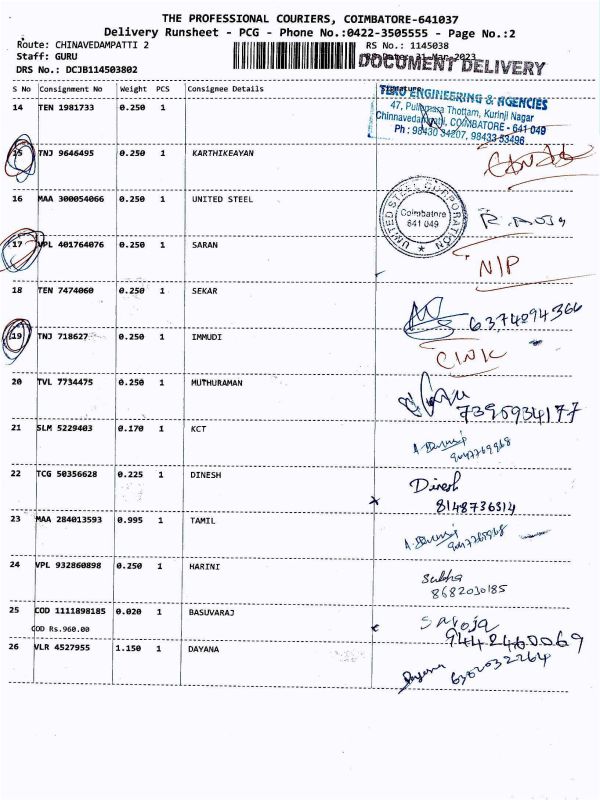 THE PROFESSIONAL COURIERS, COIMBATORE-641037
Delivery Runsheet - PCG - Phone No.:0422-3505555 - Page No.:2
Route: CHINAVEDAMPATTI 2 RS No.: 1145038
Staff: GURU 31-Mar-2023
DOCUMENT DELIVERY
DRS No.: DCJB114503802
S No Consignment No Weight PCS Consignee Details Signature
14 TEN 1981733 0.250 1
ENGINEERING & AGENCIES
47, Thottam, Kurinji Nagar
COIMBATORE - 641 049
Ph : 98430 34207, 98433 53496
15 TNJ 9646495 0.250 1 KARTHIKEAYAN
16 MAA 300054066 0.250 1 UNITED STEEL
UNITED STEEL CORPORATION
Coimbatore
641 049
R. Raja
17 VPL 401764076 0.250 1 SARAN
N/P
18 TEN 7474060 0.250 1 SEKAR
6374094366
19 TNJ 718627 0.250 1 IMMUDI
20 TVL 7734475 0.250 1 MUTHURAMAN
7395934177
21 SLM 5229403 0.170 1 KCT
22 TCG 50356628 0.225 1 DINESH
Dinesh
8148736314
23 MAA 284013593 0.995 1 TAMIL
24 VPL 932860898 0.250 1 HARINI
Subha
8682030185
25 COD 1111898185 0.020 1 BASUVARAJ
Saroja
COD Rs.960.00
9442460069
26 VLR 4527955 1.150 1 DAYANA
Dayana
6382032264